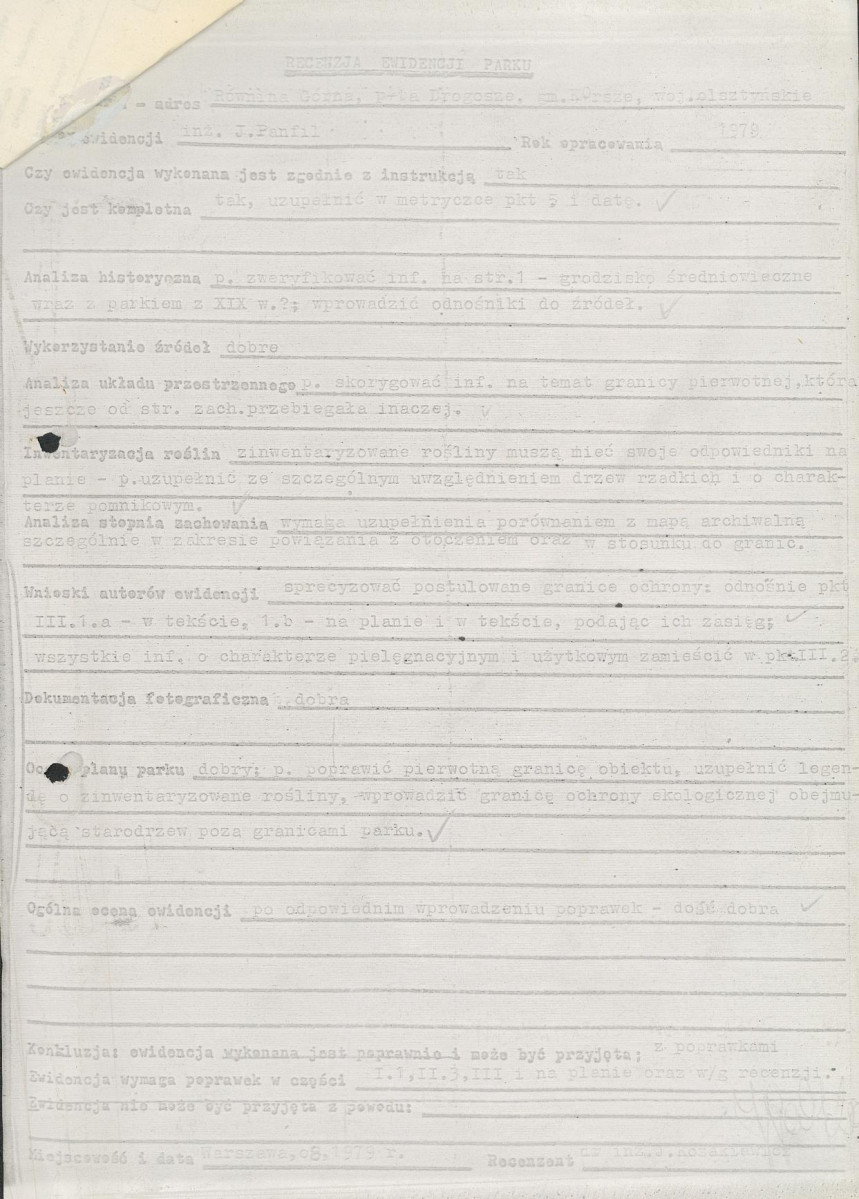 RECENZJA EWIDENCJI PARKU
- adres Równina Górna, p-ta Drogosze, gm.Korsze, woj.olsztyńskie
ewidencji inż. J.Panfil Rok opracowania 1978
Czy ewidencja wykonana jest zgodnie z instrukcją tak
Czy jest kompletna tak, uzupełnić w metryczce pkt 5 i datę.
Analiza historyczna p. zweryfikować inf. na str.1 - grodzisko średniowieczne
wraz z parkiem z XIX w.?; wprowadzić odnośniki do źródeł.
Wykorzystanie źródeł dobre
Analiza układu przestrzennego p. skorygować inf. na temat granicy pierwotnej,która
jeszcze od str. zach.przebiegała inaczej.
Inwentaryzacja roślin zinwentaryzowane rośliny muszą mieć swoje odpowiedniki na
planie - p.uzupełnić ze szczególnym uwzględnieniem drzew rzadkich i o charak-
terze pomnikowym.
Analiza stopnia zachowania wymaga uzupełnienia porównaniem z mapą archiwalną
szczególnie w zakresie powiązania z otoczeniem oraz w stosunku do granic.
Wnioski autorów ewidencji sprecyzować postulowane granice ochrony: odnośnie pkt
III.1.a - w tekście, 1.b - na planie i w tekście, podając ich zasięg;
wszystkie inf. o charakterze pielęgnacyjnym i użytkowym zamieścić w pkt.III.2.
Dokumentacja fotograficzna dobra
plany parku dobry; p. poprawić pierwotną granicę obiektu, uzupełnić legen-
dę o zinwentaryzowane rośliny, wprowadzić granicę ochrony ekologicznej obejmu-
jącą starodrzew poza granicami parku.
Ogólna ocena ewidencji po odpowiednim wprowadzeniu poprawek - dość dobra
Konkluzja: ewidencja wykonana jest poprawnie i może być przyjęta; z poprawkami
Ewidencja wymaga poprawek w części I.1,II.3,III i na planie oraz w/g recenzji.
Ewidencja nie może być przyjęta z powodu:
Miejscowość i data Warszawa,08,1979 r. Recenzent dr inż.J.Kozakiewicz